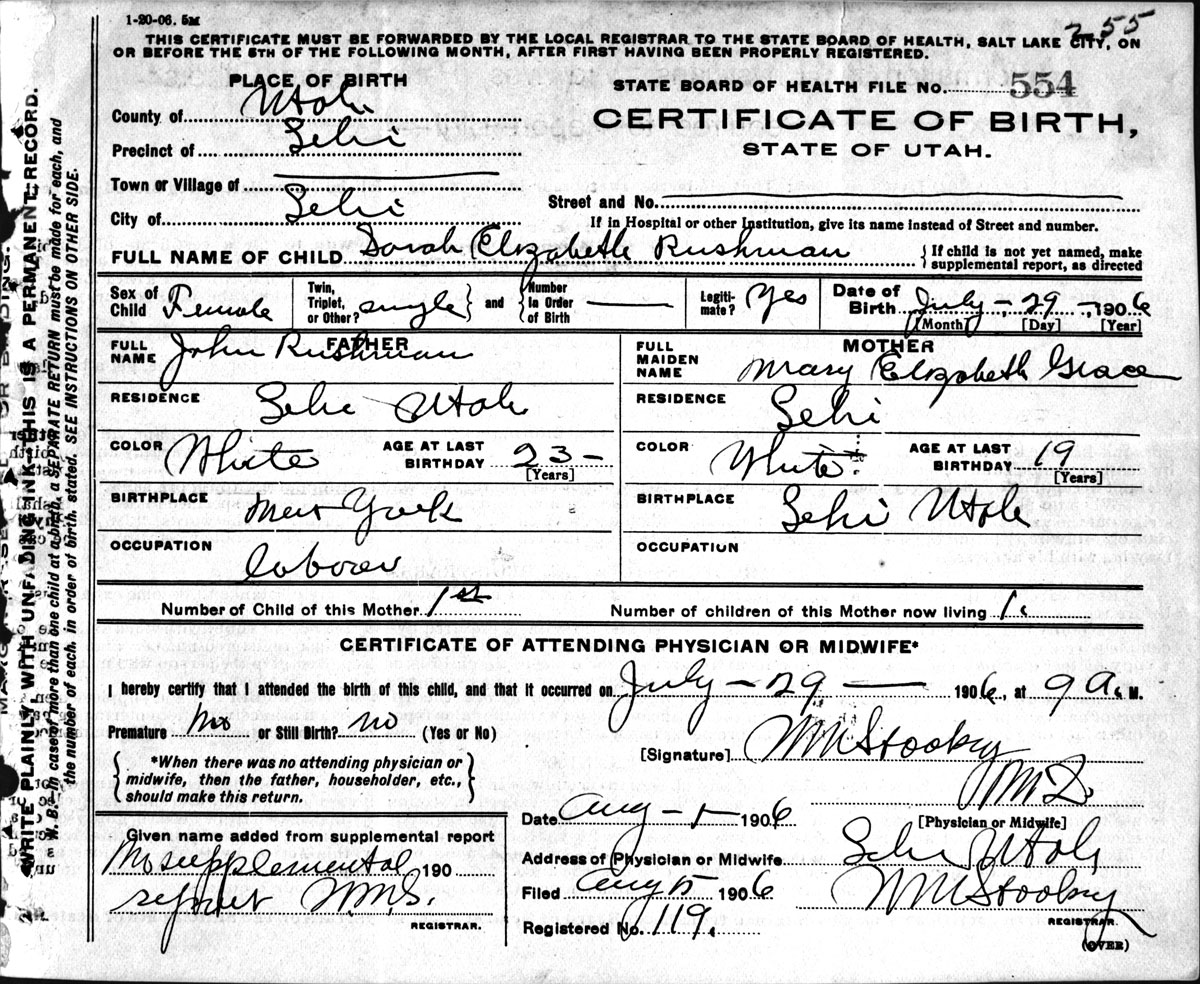 1-20-06. 5M
255
THIS CERTIFICATE MUST BE FORWARDED BY THE LOCAL REGISTRAR TO THE STATE BOARD OF HEALTH, SALT LAKE CITY, ON
OR BEFORE THE 5TH OF THE FOLLOWING MONTH, AFTER FIRST HAVING BEEN PROPERLY REGISTERED.
PLACE OF BIRTH
County of Utah
Precinct of Lehi
Town or Village of
City of Lehi
STATE BOARD OF HEALTH FILE NO. 554
CERTIFICATE OF BIRTH,
STATE OF UTAH.
Street and No.
If in Hospital or other Institution, give its name instead of Street and number.
FULL NAME OF CHILD Sarah Elizabeth Rushman {If child is not yet named, make
supplemental report, as directed
Sex of Child Female
Twin, Triplet, or Other? single} and {Number in Order of Birth
Legiti-mate? Yes
Date of Birth July - 29 -, 1906
[Month] [Day] [Year]
FATHER
FULL NAME John Rushman
RESIDENCE Lehi Utah
COLOR White AGE AT LAST BIRTHDAY 23 -
[Years]
BIRTHPLACE New York
OCCUPATION laborer
MOTHER
FULL MAIDEN NAME Mary Elizabeth Grace
RESIDENCE Lehi
COLOR White. AGE AT LAST BIRTHDAY 19
[Years]
BIRTHPLACE Lehi Utah
OCCUPATION
Number of Child of this Mother 1st Number of children of this Mother now living 1.
CERTIFICATE OF ATTENDING PHYSICIAN OR MIDWIFE*
I hereby certify that I attended the birth of this child, and that it occurred on July - 29 — 1906, at 9 A. M.
Premature No or Still Birth? no (Yes or No)
*When there was no attending physician or
midwife, then the father, householder, etc.,
should make this return.
[Signature] WM Stooky
M D.
[Physician or Midwife]
Date Aug - 1 - 1906
Address of Physician or Midwife Lehi Utah
Filed Aug 15 1906 WM Stooky
REGISTRAR.
Registered No. 119.
(OVER)
Given name added from supplemental report
No supplemental 190
report W.M.S.
REGISTRAR.
WRITE PLAINLY, WITH UNFADING INK—THIS IS A PERMANENT RECORD.
N. B.—In case of more than one child at a birth, a SEPARATE RETURN must be made for each, and
the number of each, in order of birth, stated. SEE INSTRUCTIONS ON OTHER SIDE.